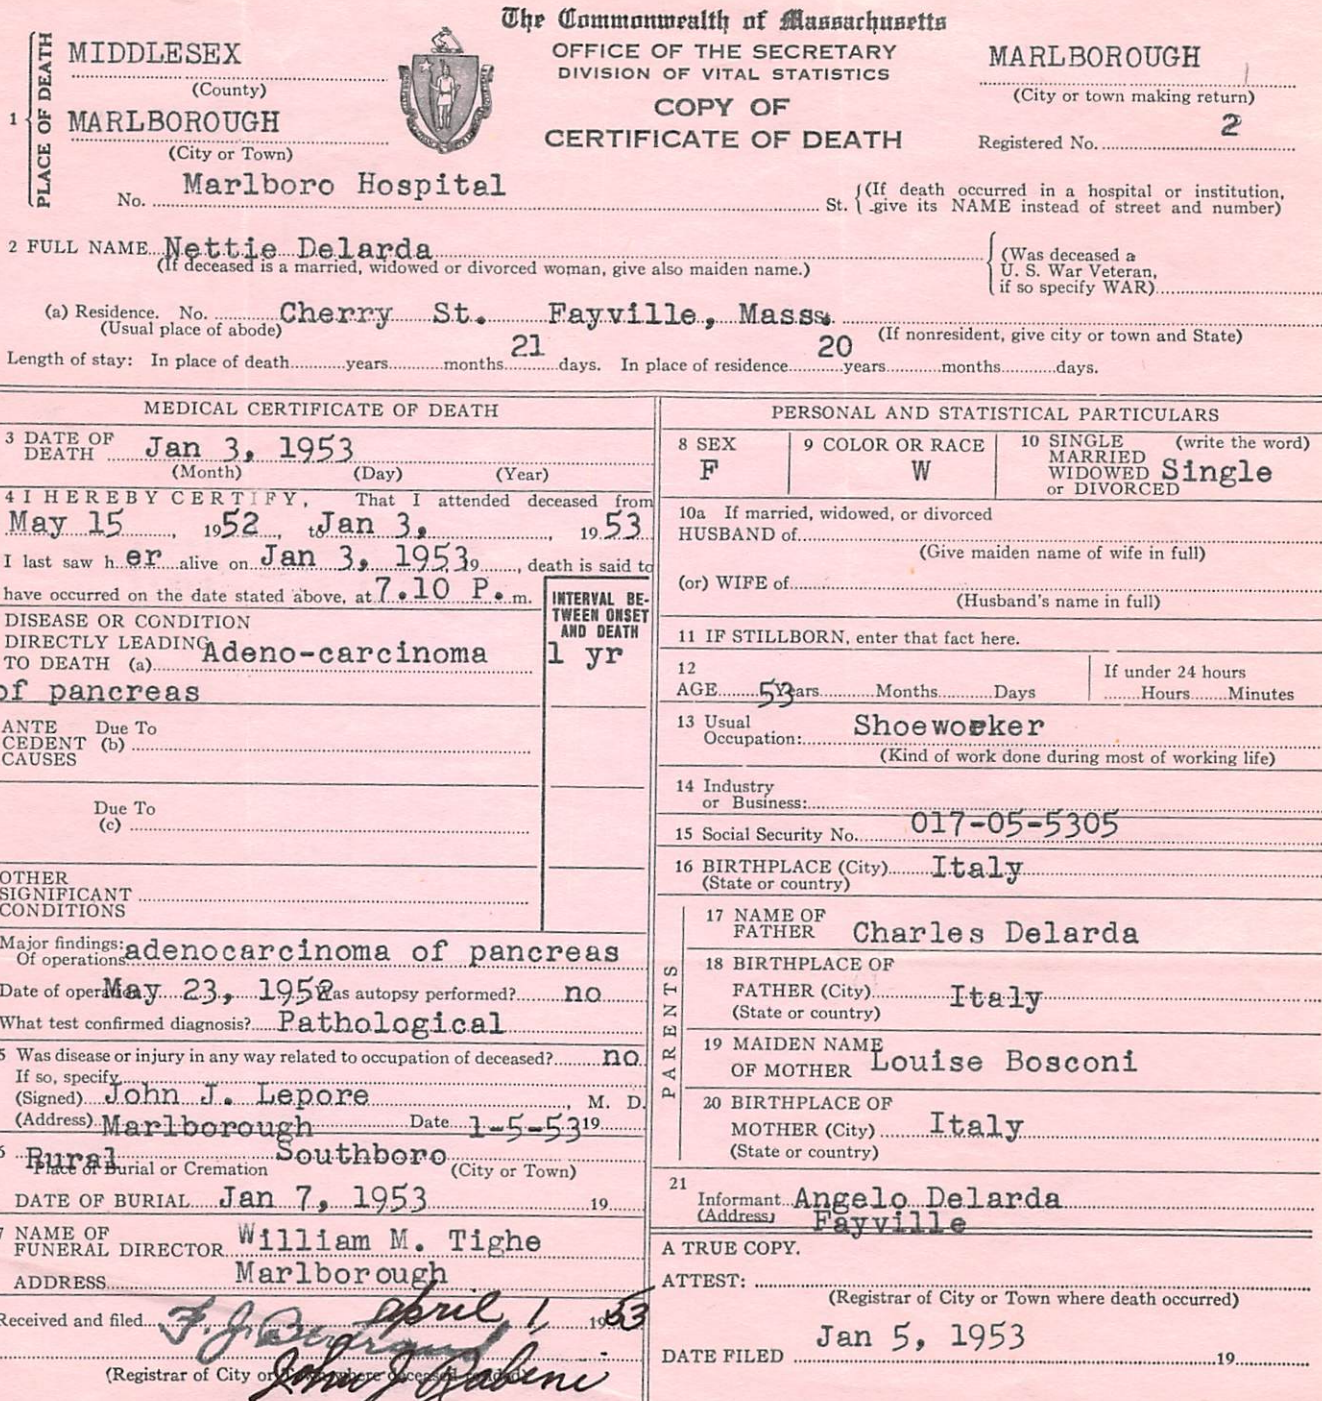 The Commonwealth of Massachusetts
OFFICE OF THE SECRETARY
DIVISION OF VITAL STATISTICS
COPY OF
CERTIFICATE OF DEATH
1 PLACE OF DEATH
MIDDLESEX
(County)
MARLBOROUGH
(City or Town)
MARLBOROUGH
(City or town making return)
Registered No. 2
No. Marlboro Hospital St. (If death occurred in a hospital or institution,
give its NAME instead of street and number)
2 FULL NAME Nettie Delarda
(If deceased is a married, widowed or divorced woman, give also maiden name.)
(Was deceased a
U. S. War Veteran,
if so specify WAR)
(a) Residence. No. Cherry St. Fayville, Mass.
(Usual place of abode) (If nonresident, give city or town and State)
Length of stay: In place of death years months 21 days. In place of residence 20 years months days.
MEDICAL CERTIFICATE OF DEATH
3 DATE OF
DEATH Jan 3, 1953
(Month) (Day) (Year)
4 I HEREBY CERTIFY, That I attended deceased from
May 15, 1952, to Jan 3, 1953
I last saw her alive on Jan 3, 1953 19, death is said to
have occurred on the date stated above, at 7.10 P. m.
INTERVAL BE-
TWEEN ONSET
AND DEATH
DISEASE OR CONDITION
DIRECTLY LEADING
TO DEATH (a) Adeno-carcinoma 1 yr
of pancreas
ANTE Due To
CEDENT (b)
CAUSES
Due To
(c)
OTHER
SIGNIFICANT
CONDITIONS
Major findings:
Of operations adenocarcinoma of pancreas
Date of operation May 23, 1952 Was autopsy performed? no
What test confirmed diagnosis? Pathological
5 Was disease or injury in any way related to occupation of deceased? no
If so, specify
(Signed) John J. Lepore, M. D.
(Address) Marlborough Date 1-5-53 19
6 Rural Southboro
Place of Burial or Cremation (City or Town)
DATE OF BURIAL Jan 7, 1953 19
7 NAME OF
FUNERAL DIRECTOR William M. Tighe
ADDRESS Marlborough
Received and filed april 1, 1953
(Registrar of City or Town where deceased resided)
PERSONAL AND STATISTICAL PARTICULARS
8 SEX
F
9 COLOR OR RACE
W
10 SINGLE (write the word)
MARRIED
WIDOWED Single
or DIVORCED
10a If married, widowed, or divorced
HUSBAND of
(Give maiden name of wife in full)
(or) WIFE of
(Husband's name in full)
11 IF STILLBORN, enter that fact here.
12
AGE 53 Years Months Days
If under 24 hours
Hours Minutes
13 Usual
Occupation: Shoeworker
(Kind of work done during most of working life)
14 Industry
or Business:
15 Social Security No. 017-05-5305
16 BIRTHPLACE (City) Italy
(State or country)
PARENTS
17 NAME OF
FATHER Charles Delarda
18 BIRTHPLACE OF
FATHER (City) Italy
(State or country)
19 MAIDEN NAME
OF MOTHER Louise Bosconi
20 BIRTHPLACE OF
MOTHER (City) Italy
(State or country)
21
Informant Angelo Delarda
(Address) Fayville
A TRUE COPY.
ATTEST:
(Registrar of City or Town where death occurred)
DATE FILED Jan 5, 1953 19